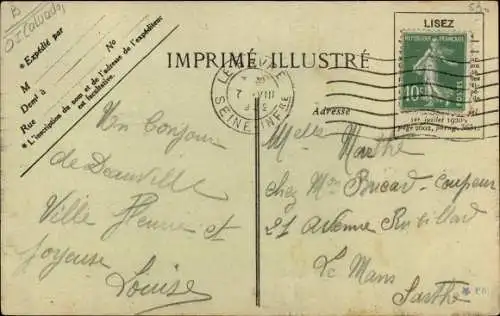 B
01 Calvados
* Expédié par
M
Demt à
Rue No
* L'inscription du nom et de l'adresse de l'expéditeur
est facultative.
IMPRIMÉ ILLUSTRÉ
LISEZ
REPUBLIQUE FRANÇAISE
10c
POSTES
1er juillet 1920
LE HAVRE
7 VIII
SEINE INFRE
Adresse
Un Bonjour
de Deauville
Ville Fleurie et
Joyeuse
Louise
Melle Marthe
chez Mr Bricard - Coupeur
21 Avenue Rubillard
Le Mans
Sarthe